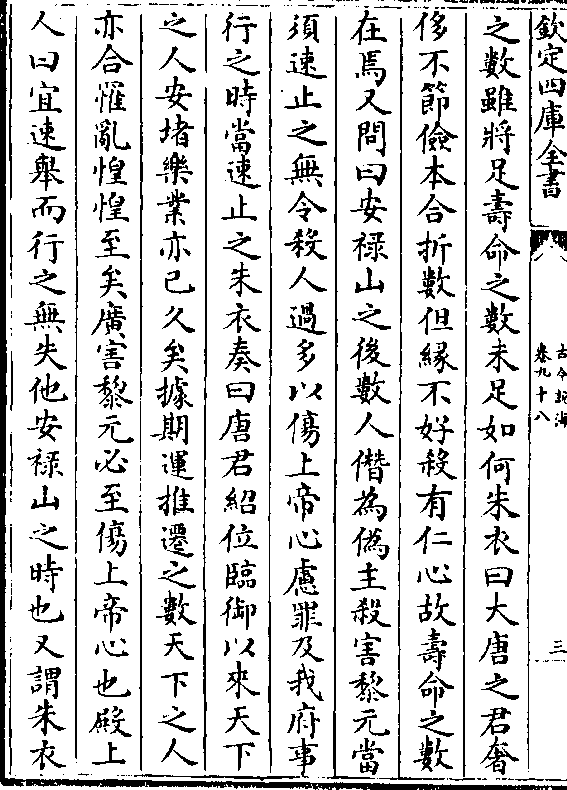 欽定四庫全書
古今說海
卷九十八
三
之數雖將足壽命之數未足如何朱衣曰大唐之君奢
侈不節儉本合折數但緣不好殺有仁心故壽命之數
在焉又問曰安禄山之後數人僭為偽主殺害黎元當
須速止之無令殺人過多以傷上帝心慮罪及我府事
行之時當速止之朱衣奏曰唐君紹位臨御以來天下
之人安堵樂業亦已久矣據期運推遷之數天下之人
亦合罹亂惶惶至矣廣害黎元必至傷上帝心也殿上
人曰宜速舉而行之無失他安禄山之時也又謂朱衣